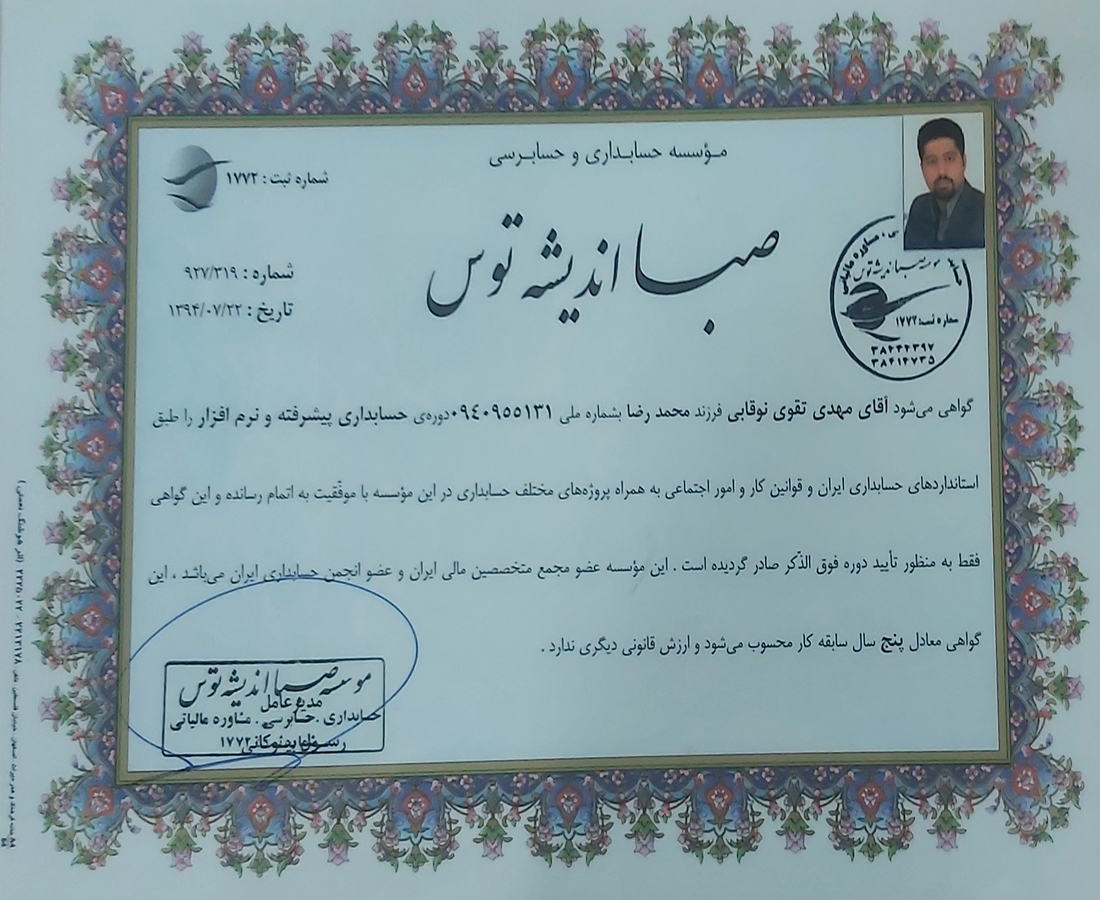 مؤسسه حسابداری و حسابرسی
شماره ثبت : ۱۷۷۲
صبا اندیشه توس
شماره : ۹۲۷/۳۱۹
تاریخ : ۱۳۹۴/۰۷/۲۲
مشاوره مالیاتی
موسسه صبا اندیشه توس
شماره ثبت: ۱۷۷۲
۳۸۴۴۲۳۹۷
۳۸۴۱۴۷۳۵
گواهی می‌شود آقای مهدی تقوی نوقابی فرزند محمد رضا بشماره ملی ۰۹٤۰۹٥٥۱۳۱دوره‌ی حسابداری پیشرفته و نرم افزار را طبق
استانداردهای حسابداری ایران و قوانین کار و امور اجتماعی به همراه پروژه‌های مختلف حسابداری در این مؤسسه با موفّقیت به اتمام رسانده و این گواهی
فقط به منظور تأیید دوره فوق الذّکر صادر گردیده است . این مؤسسه عضو مجمع متخصصین مالی ایران و عضو انجمن حسابداری ایران می‌باشد ، این
گواهی معادل پنج سال سابقه کار محسوب می‌شود و ارزش قانونی دیگری ندارد .
موسسه صبا اندیشه توس
مدیر عامل
حسابداری . حسابرسی . مشاوره مالیاتی
۱۷۷۲